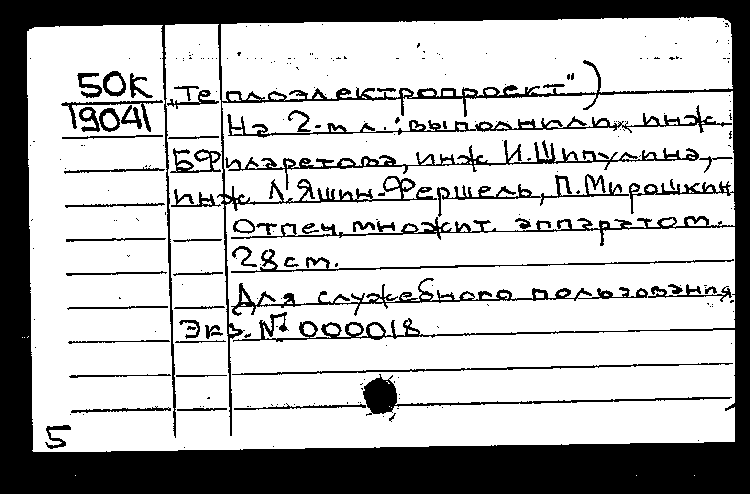 50К „Теплоэлектропроект")
19041 На 2-м л.: выполнили инж.
Б Филаретова, инж. И.Шипулина,
инж. Л.Яшин-Фершель, П.Мирошкин
Отпеч. множит. аппаратом.
28 ст.
Для служебного пользования
Экз. № 000018
5